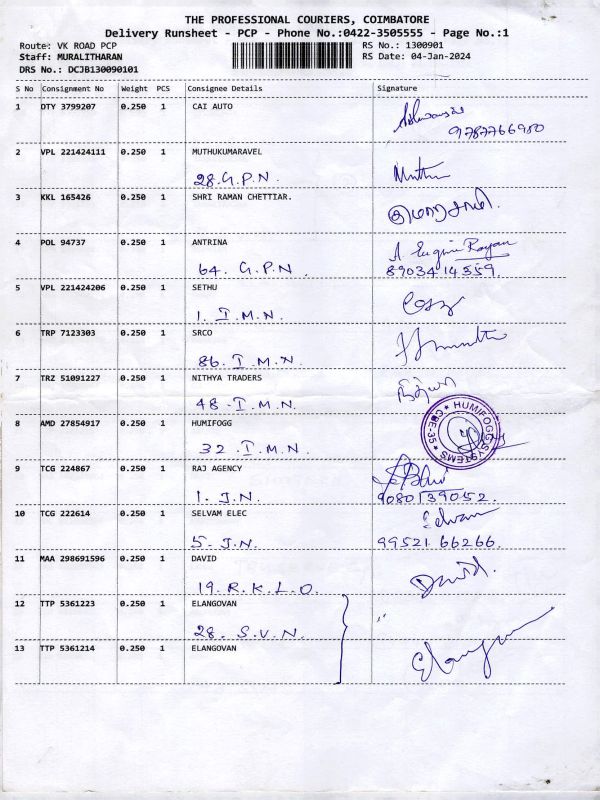 THE PROFESSIONAL COURIERS, COIMBATORE
Delivery Runsheet - PCP - Phone No.:0422-3505555 - Page No.:1
Route: VK ROAD PCP RS No.: 1300901
Staff: MURALITHARAN RS Date: 04-Jan-2024
DRS No.: DCJB130090101
S No Consignment No Weight PCS Consignee Details Signature
1 OTY 3799207 0.250 1 CAI AUTO
9787766980
2 VPL 221424111 0.250 1 MUTHUKUMARAVEL
28. G.P.N. Muthu
3 KKL 165426 0.250 1 SHRI RAMAN CHETTIAR.
4 POL 94737 0.250 1 ANTRINA A. Eugin Rayan
64. G.P.N. 89034 14559.
5 VPL 221424206 0.250 1 SETHU
1. I.M.N.
6 TRP 7123303 0.250 1 SRCO
86. I.M.N.
7 TRZ 51091227 0.250 1 NITHYA TRADERS
48. I.M.N.
8 AMD 27854917 0.250 1 HUMIFOGG HUMIFOGG SYSTEMS * CBE-35 *
32. I.M.N.
9 TCG 224867 0.250 1 RAJ AGENCY
1. J.N. 9080139052.
10 TCG 222614 0.250 1 SELVAM ELEC Selvam
5. J.N. 99521 66266.
11 MAA 298691596 0.250 1 DAVID David.
19. R.K.L.O.
12 TTP 5361223 0.250 1 ELANGOVAN
28. S.V.N.
13 TTP 5361214 0.250 1 ELANGOVAN Elangovan